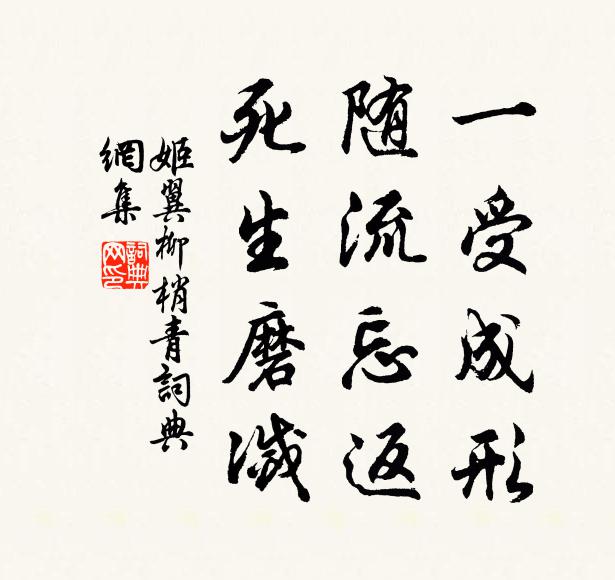 一受成形
随流忘返
死生磨滅
姬翼柳梢青詞典
網集
詞典
网印